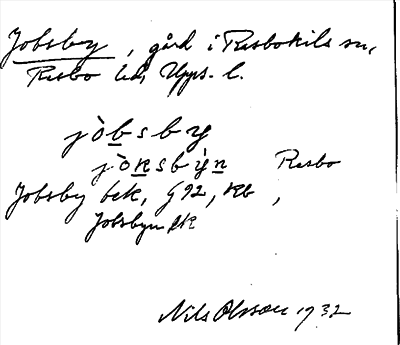 Jobsby, gård i Rasbokils sn,
Rasbo hd, Upps. l.
jòbsby
jòksbỳn Rasbo
Jobsby bek, G92, Kb,
Jobsbyn JK
Nils Olsson 1932